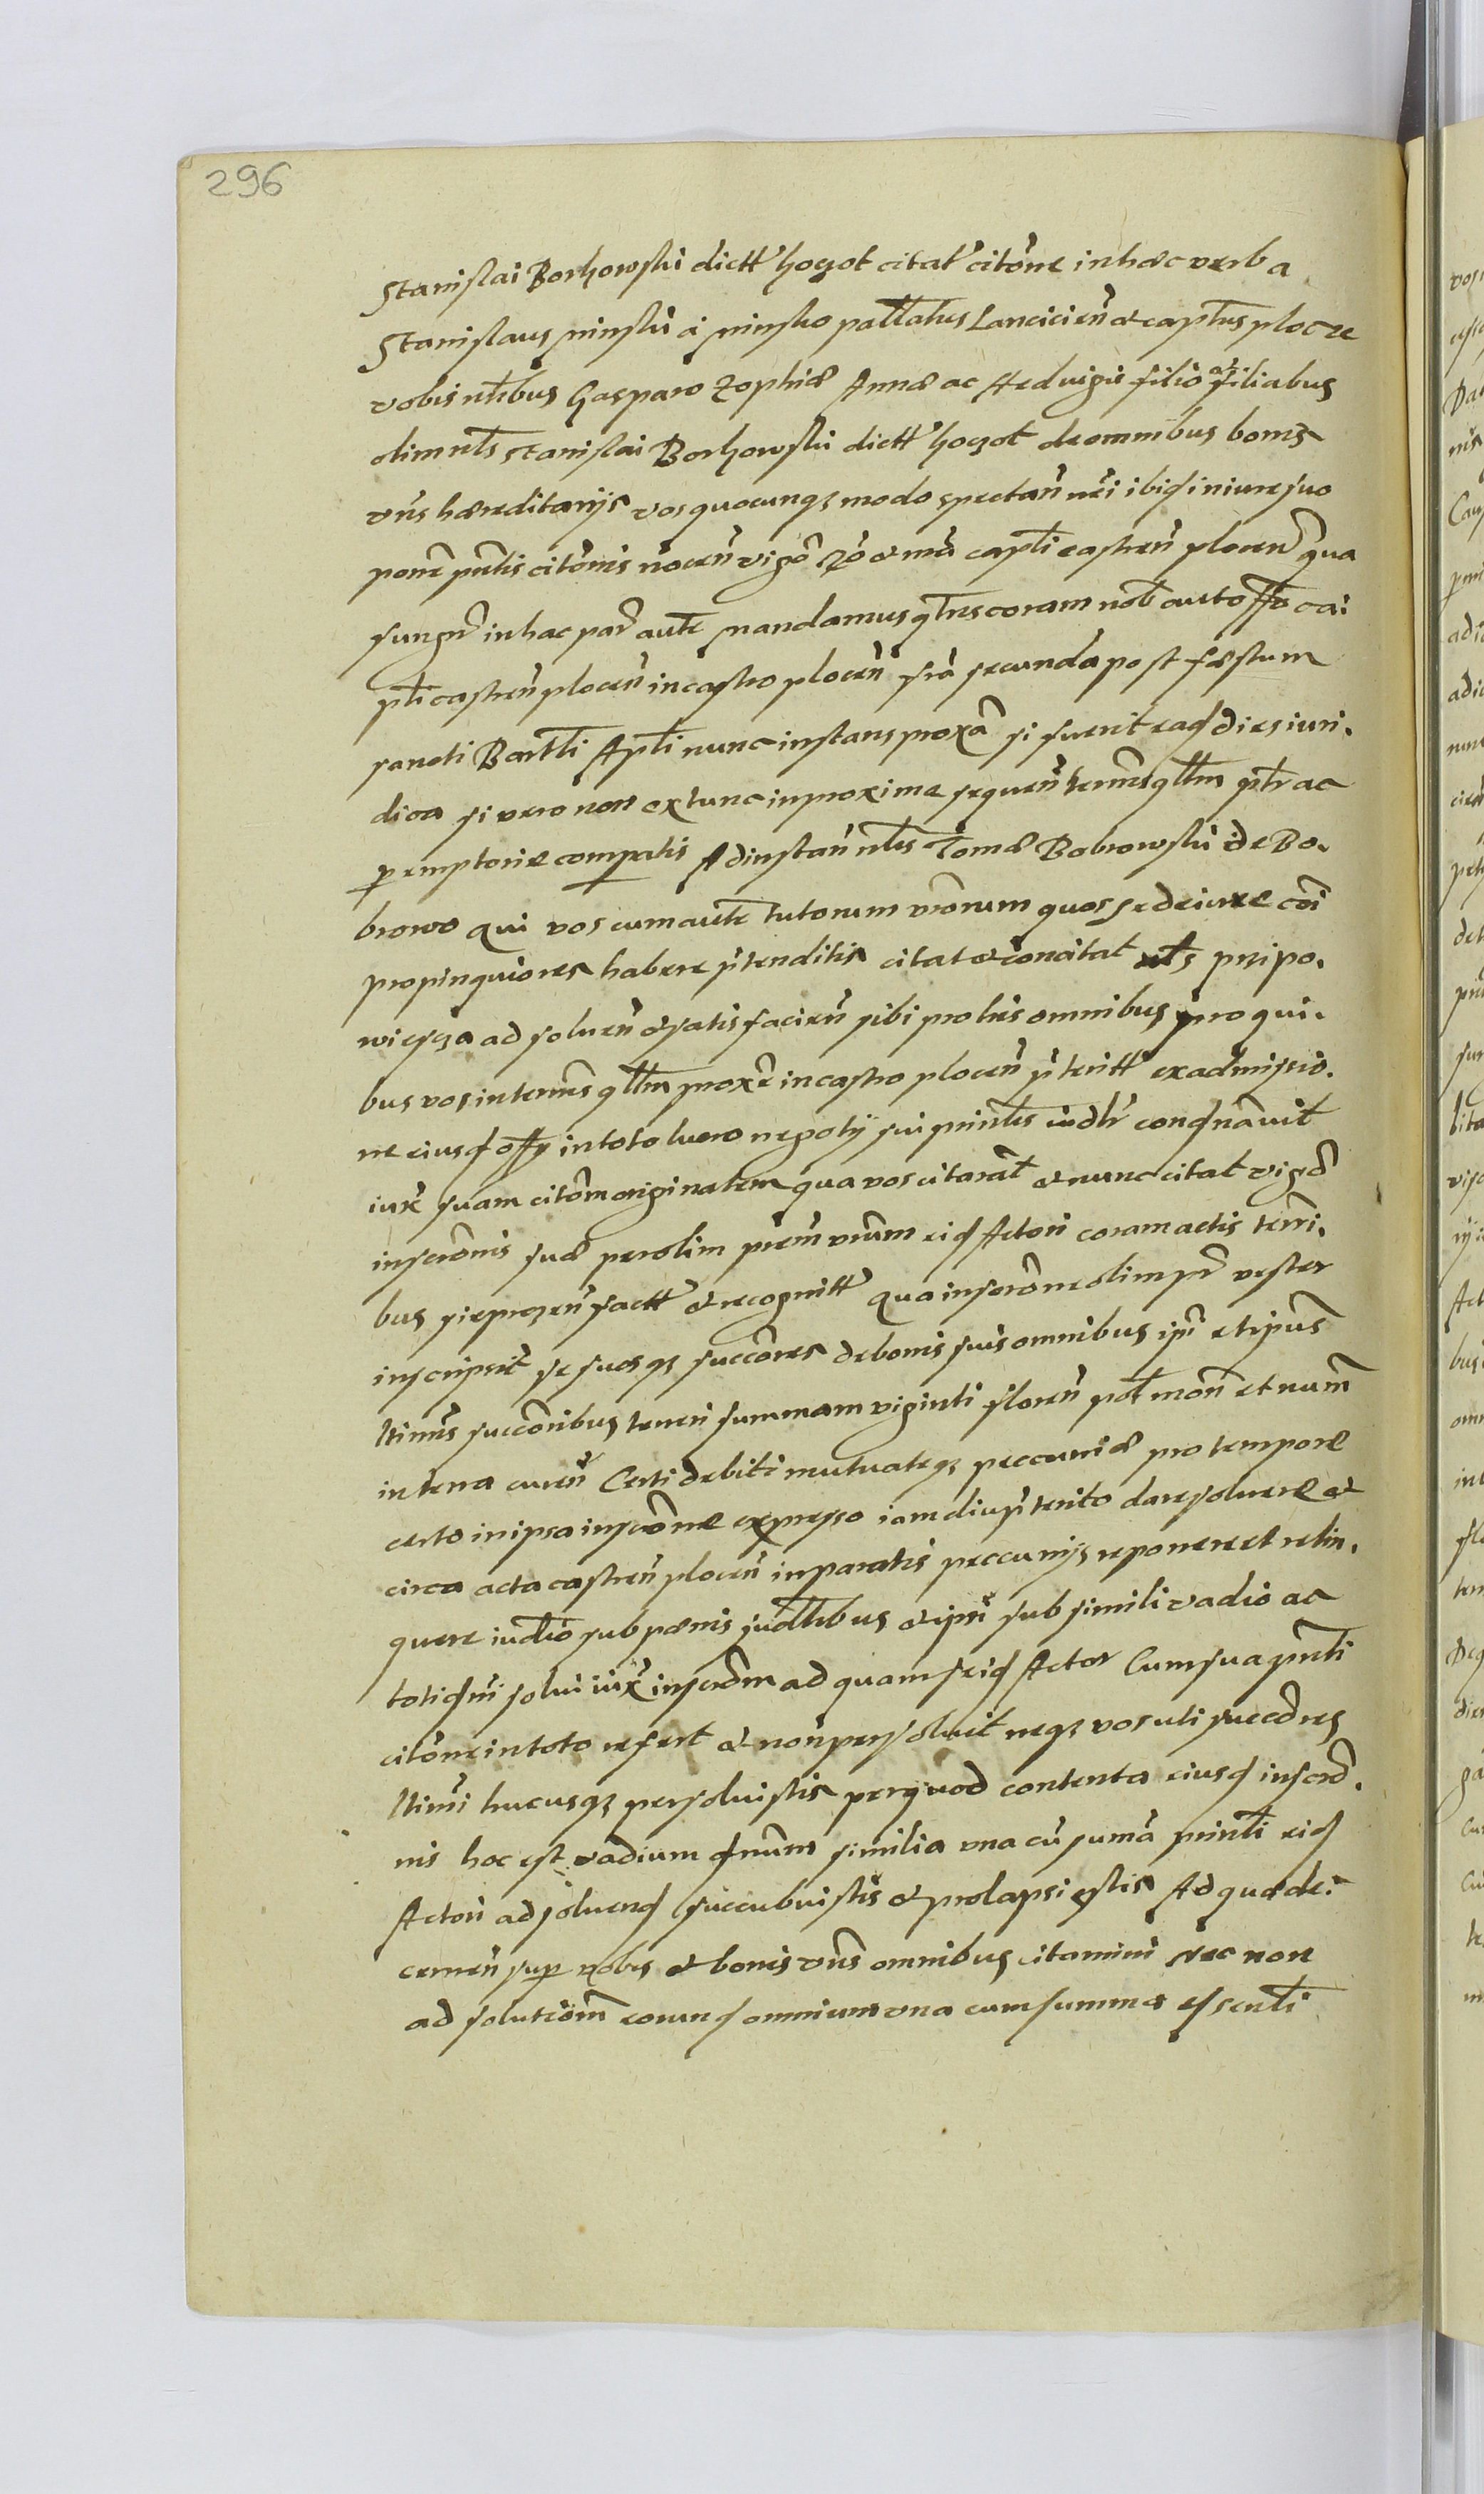 296
Stanislai Borhowski dictt hogot citat citone in hac verba
Stanislaus Minski a Minsko pallatus Lancicien et captus plocze
vobis nlibus Gasparo Zophiæ Annæ ac Hedvigis filio ac filiabus
olim nlis Stanislai Borhowski dictt hogot de omnibus bonis
vris hæreditarijs vos quocunq modo spectan nri ibiq in iure suo
pone pntis citonis nocen vigo Ro et ma capti castren plocen qua
fungr in hac par aute mandamus qtnus coram nob aut offo ca:
pti castren plocen in castro plocen fia secunda post fæstum
sancti Bartli Apli nunc instans proxa si fuerit eaq dies iuri.
dica si vero non extunc in proxime sequen termis qllm ptr ac
peremptorie compatis Ad instan nlis Tomæ Bobrowski de Bo.
browo qui vos cum aute tutorum vrorum quos se de iure coi
propinquiores habere ptenditis citat et concitat pripo.
wiesza ad soluen et satisfacien sibi pro his omnibus pro qui.
bus vos in termis qllm proxe in castro plocen pteritt ex admissio.
ne eiusq offy in toto lucro negotij sui prinlis iudtr condnavit
iux suam citom originalem qua vos citarat et nunc citat vigo
inscronis suæ per olim prem vrum eiq Actori coram actis terri.
bus sieprzen factt et recognitt qua inscrone olim pr vester
inscripsit se suosq succones de bonis suis omnibus ipi et ipius
ltimis succonibus teneri summam viginti floren pol mon et num
in terra curen Certi debiti mutuateq peccuniæ pro tempore
certo in ipsa inscrone expresso iam diu pterito dare soluere et
circa acta castren plocen in paratis peccunijs reponere et relin.
quere iudtio sub pænis iudlibus et ipm sub simili vadio ac
totiq mi solui iux inscrom ad quam se iq Actor Cum sua pnti
citone in toto refert et non persoluit neq vos uti succores
ltimi hucusq persoluistis per quod contenta eiusq inscro.
nis hoc est vadium dnum similia una cu suma prinli eiq
Actori ad soluend succubuistis et prolapsi estis Ad quæ de:
cernen sup vobis et bonis vris omnibus citamini Nec non
ad solutiom eorunq omnium una cum summa essenli